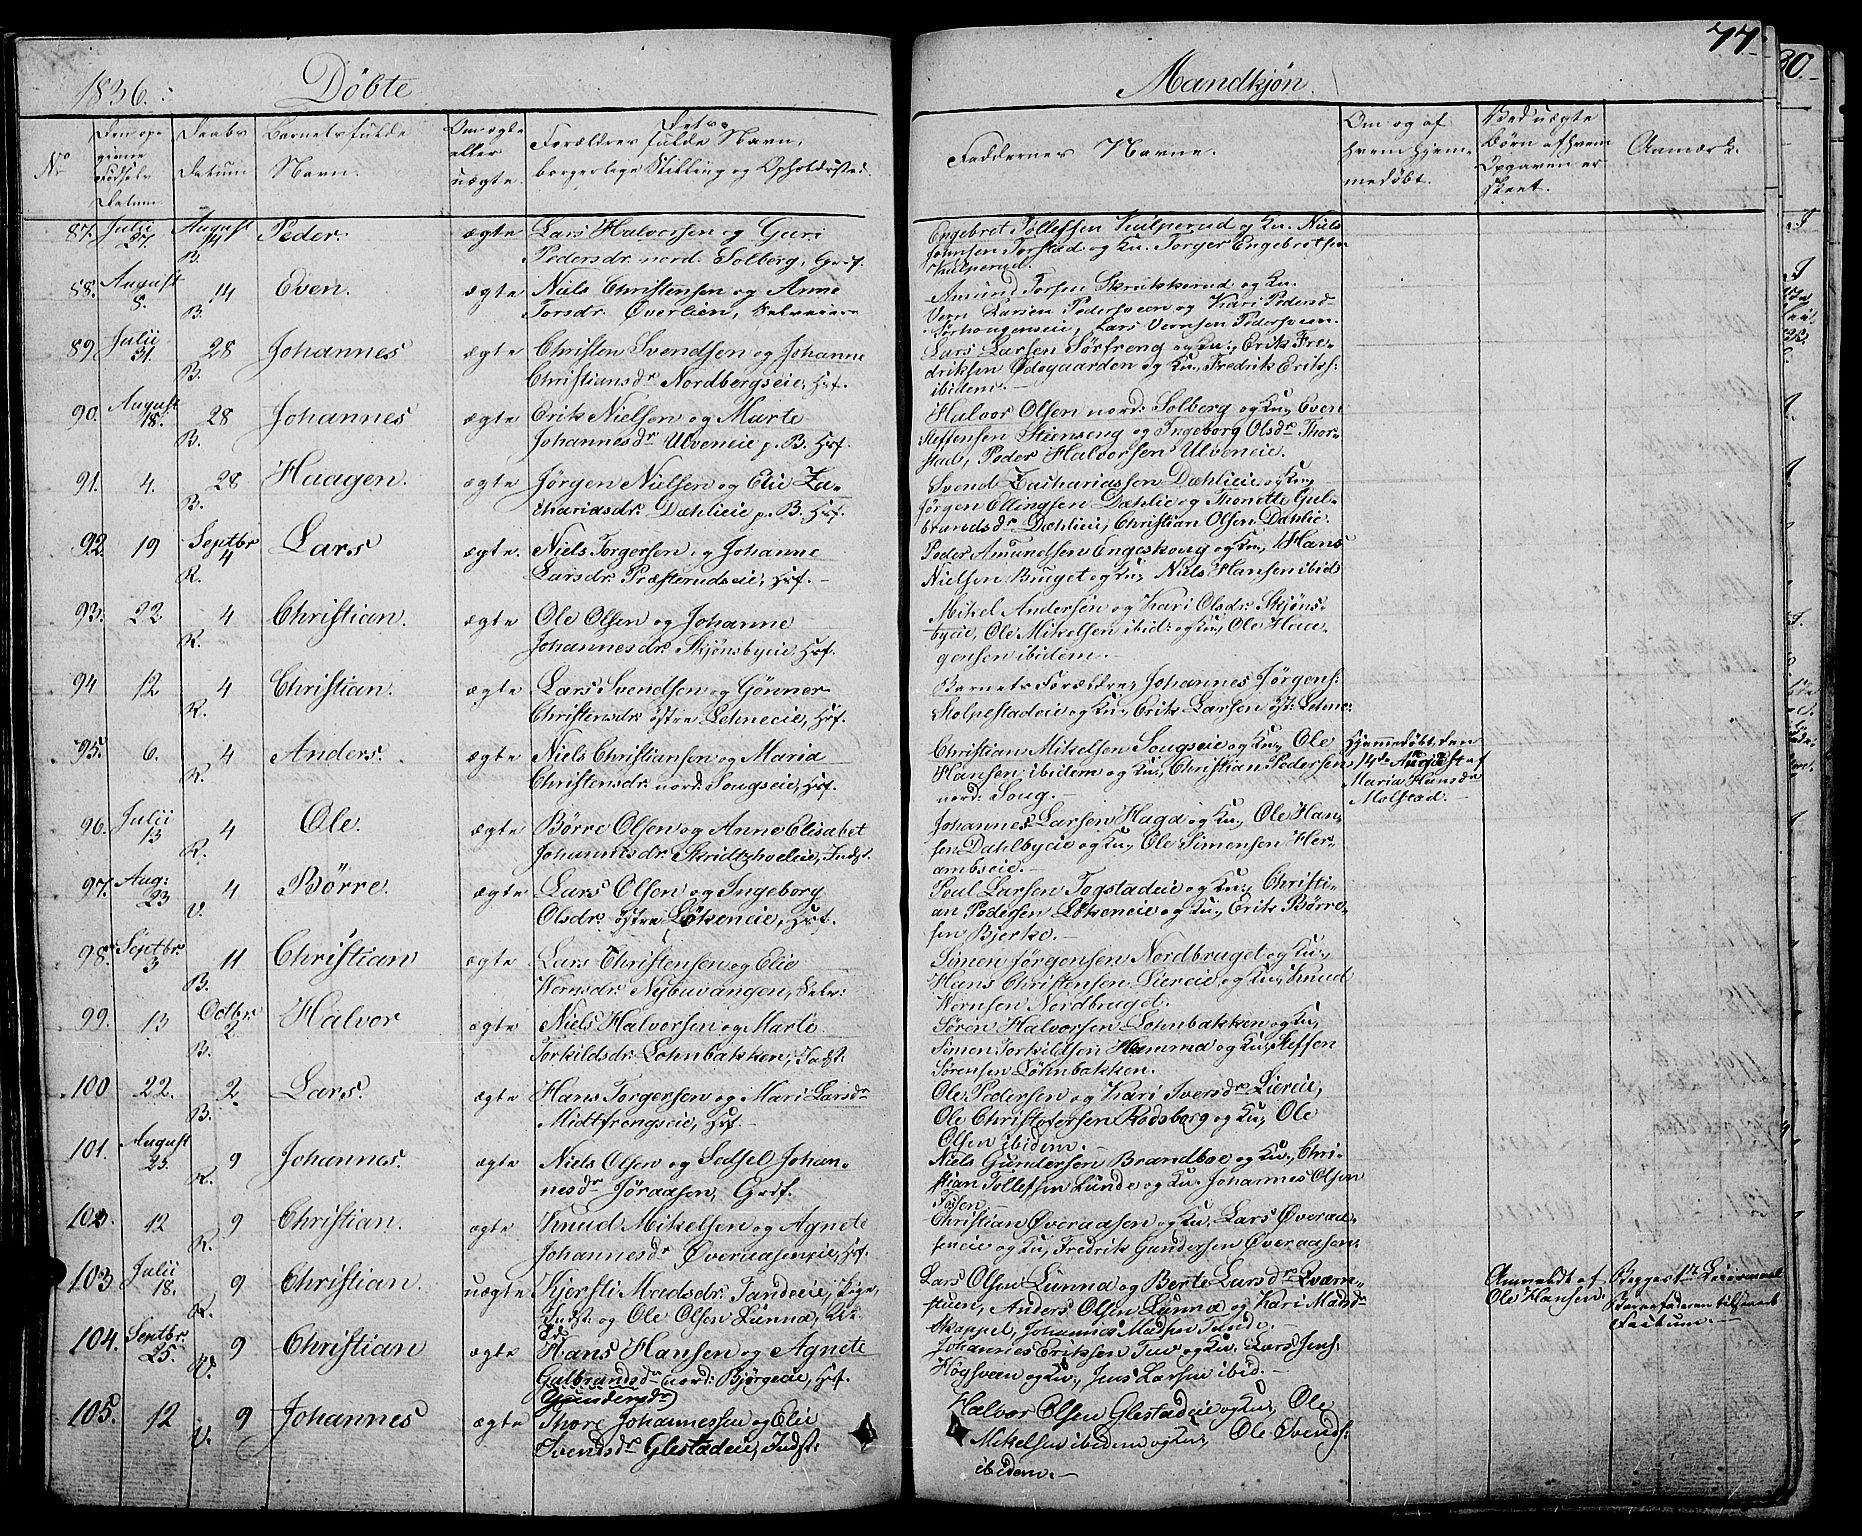 1836. Döbte Mandkjøn. 77.
No
Den op-
givne
Födsels
Datum
Daabs
Datum
Barnets fulde
Navn.
Om ægte
eller
uægte.
Forældres fulde Navn,
borgerlige Stilling og Opholdssted.
Faddernes Navne.
Om og af
hvem hjem-
medøbt.
Ved uægte
Børn af hvem
Opgaven er
skeet.
Anmærk.
87. Julii 27. August 14 B. Peder. ægte Lars Halvorsen og Guri
Pedersdr. nord. Solberg, Grdf.
Engebret Tollefsen Kulperud og Ku. Niels
Johnsen Torstad og Ku. Torger Engebretsen
Kulperud.
88. August 8. 14 B. Even. ægte Niels Christensen og Anne
Torsdr. Øverlien, Selveiere
Amund Torsen Skrukkerud og Ku.
Vern Larsen Pedersveen og Kari Pedersd.
Lars Vernsen Pedersveen.
89. Julii 31. 28 B. Johannes ægte Christen Svendsen og Johanne
Christiansdr. Nordbergseie, Hsf.
Lars Larsen Sørfreng og Ku., Erik Fre-
driksen Ødegaarden og Ku., Fredrik Eriks:
ibidem.
90. August 18. 28 B. Johannes ægte Erik Nielsen og Marte
Johannesdr. Ulveneie p. B. Hsf.
Halvor Olsen nord: Solberg og Ku., Even
Steffensen Steenseng og Ingeborg Olsdr. Thor-
stad, Peder Halvorsen Ulveneie.
91. 4. 28 B. Haagen. ægte Jørgen Nielsen og Elie Za-
chariasdr. Dæhlieie p. B. Hsf.
Svend Zachariassen Dæhlieie og Ku.,
Jørgen Ellingsen Dæhlie og Thonette Gul-
brandsdr. Dæhlieie, Christian Olsen Dæhlie:
92. 19 Septbr 4 R. Lars ægte. Niels Torgersen og Johanne
Larsdr. Præsterudseie, Hsf.
Peder Amundsen Engeskoug og Ku., Hans
Nielsen Bruget og Ku., Niels Hansen ibid
93. 22 4 R. Christian. ægte Ole Olsen og Johanne
Johannesdr. Skjønsbyeie, Hsf.
Mikel Andersen og Kari Olsdr. Skjøns-
byeie, Ole Mikelsen ibid: og Ku., Ole Haa-
gensen ibidem.
94 12 4 R. Christian. ægte Lars Svendsen og Gønner
Christensdr. östre Lehneeie, Hsf.
Barnets Forældre, Johannes Jørgens:
Stolpestadeie og Ku., Erik Larsen öst: Lehne:
95. 6. 4 R. Anders. ægte Niels Christiansen og Maria
Christensdr. nord: Sougseie, Hsf.
Christian Mikelsen Sougseie og Ku., Ole
Hansen ibidem og Ku., Christian Pedersen
nord: Soug.
Hjemmedøbt, den
14de August af
Maria Hansdr
Molstad.
96. Julii 13 4 R. Ole. ægte Børre Olsen og Anne Elisabet
Johannesdr. Indst.
Johannes Larsen Haga og Ku., Ole Han-
sen Dahlbyeie og Ku., Ole Simensen Her-
ambseie.
97. Aug: 23 4 V. Børre. ægte Lars Olsen og Ingeborg
Olsdr. östre Løkeneie, Hsf.
Poul Larsen Togstadeie og Ku., Christi-
an Pedersen Løkeneie og Ku., Erik Børre-
sen Bjerke.
98. Septbr. 3 11 B. Christian ægte Lars Christensen og Elie
Vernsdr. Nybuvangen, Selv:
Simen Jørgensen Nordbruget og Ku.,
Hans Christensen Liereie og Ku., Knud
Vernsen Nordbruget.
99. 13 Octbr 2. B. Halvor ægte Niels Halvorsen og Marte
Torkildsdr. Lohnbakken, Indst:
Søren Halvorsen Lohnbakken og Ku,
Simen Torkildsen Hemma og Ku., Steffen
Sørensen Løhnbakken.
100 22. 2 B. Lars. ægte Hans Torgersen og Mari Larsdr
Midtfrengseie, Hsf.
Ole Pedersen og Kari Iversdr. Liereie,
Ole Christofersen Rodsberg og Ku., Ole
Olsen ibidem.
101. August 25. 9 R. Johannes. ægte Niels Olsen og Sedsel Johan-
nesdr Jøraasen, Grdf.
Niels Gundersen Brandboe og Ku., Chri-
stian Tollefsen Lunde og Ku. Johannes Olsen
102. 12 9 R. Christian. ægte Knud Mikelsen og Agnete
Johannesdr Øveraaseneie, Hsf.
Christian Øveraasen og Ku., Lars Øveraa-
seneie og Ku., Fredrik Gundersen Øveraasen.
103 Julii 18. 9 R. Christian. uægte Kjersti Madsdr. Tandeeie, Pige,
Indst. og Ole Olsen Lunna,
Lars Olsen Lunna og Berte Larsdr. Kværn-
stuen, Anders Olsen Lunna og Kari Madsd.
Skappel, Johannes Madsen Tande.
Anmeldt af
Ole Hansen.
Begges 1ste Leiermaal
Barnefaderen tilstaaet
Factum.
104. Septbr. 25. 9 V. Christian ægte Hans Hansen og Agnete
Gulbrandsdr nord: Bjørgeeie, Hsf.
(Gundersdr)
Johannes Eriksen Tuv og Ku. Lars Jens:
Høgsveen og Ku., Jens Larsen ibid.
105. 12 9 V. Johannes ægte Thore Johannessen og Elie
Svendsdr Glestadeie, Indst:
Halvor Olsen Glestadeie og Ku, Ole
Mikelsen ibidem og Ku, Ole Svends:
ibidem.